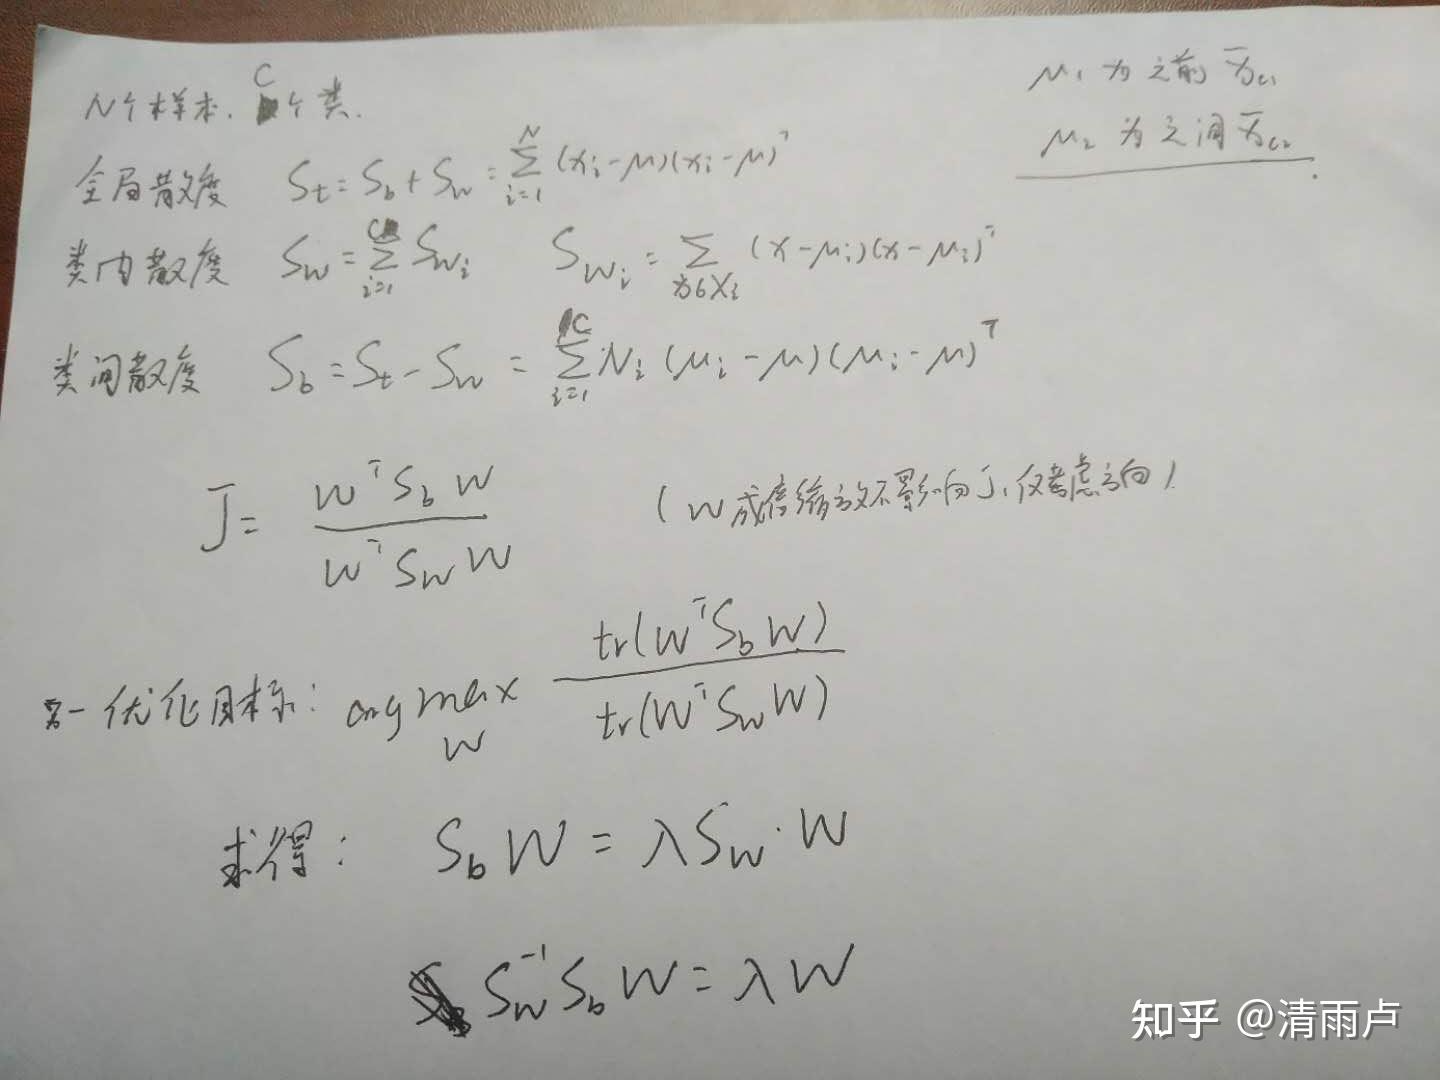 N个样本. C个类.
μ₁ 为 之前 x̄c₁
μ₂ 为 之间 x̄c₂
全局散度 St = Sb + Sw = ∑_{i=1}^{N} (xi - μ)(xi - μ)ᵀ
类内散度 Sw = ∑_{i=1}^{C} Swi Swi = ∑_{x∈Xi} (x - μi)(x - μi)ᵀ
类间散度 Sb = St - Sw = ∑_{i=1}^{C} Ni (μi - μ)(μi - μ)ᵀ
J = WᵀSbW / WᵀSwW (W成倍缩放不影响J, 仅考虑方向)
优化目标: arg max_W tr(WᵀSbW) / tr(WᵀSwW)
求得: SbW = λSw·W
Sw⁻¹SbW = λW
知乎 @清雨卢